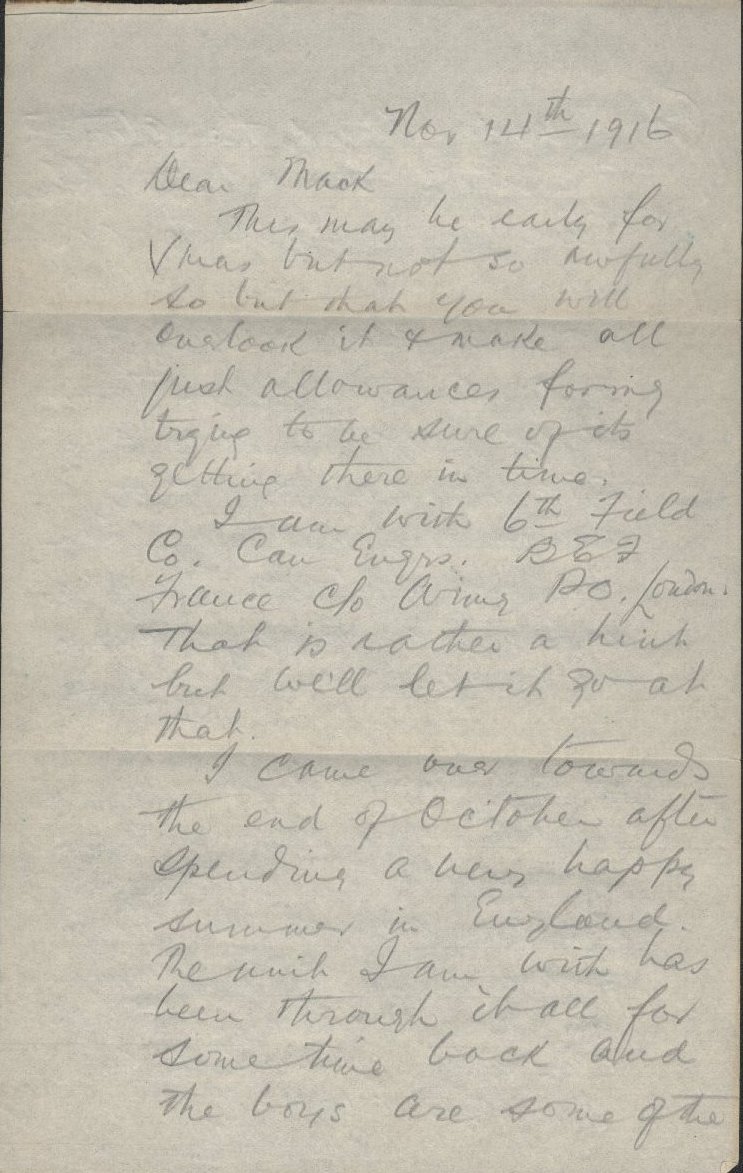 Nov 14th 1916
Dear Mack
This may be early for
Xmas but not so awfully
so but that you will
overlook it & make all
just allowances for my
trying to be sure of its
getting there in time.
I am with 6th Field
Co. Can Engrs. BEF
France c/o Army P.O. London.
That is rather a hint
but we'll let it go at
that.
I came over towards
the end of October after
spending a very happy
summer in England.
The unit I am with has
been through it all for
some time back and
the boys are some of the